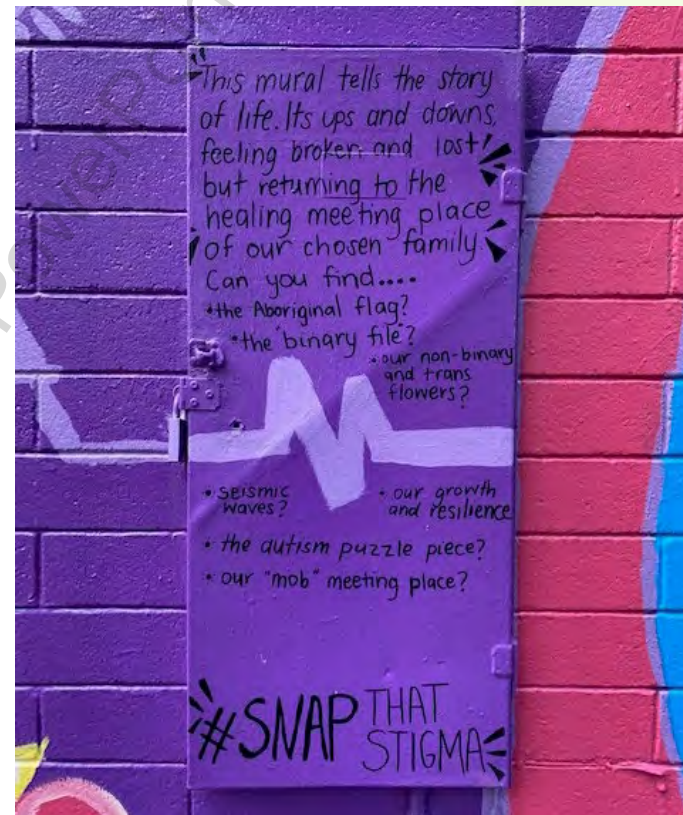 This mural tells the story
of life. Its ups and downs,
feeling broken and lost
but returning to the
healing meeting place
of our chosen family
Can you find....
• the Aboriginal flag?
• the "binary file"?
• our non-binary
and trans
flowers?
• SEISMIC
waves?
• our growth
and resilience
• the autism puzzle piece?
• our "mob" meeting place?
#SNAP THAT
STIGMA